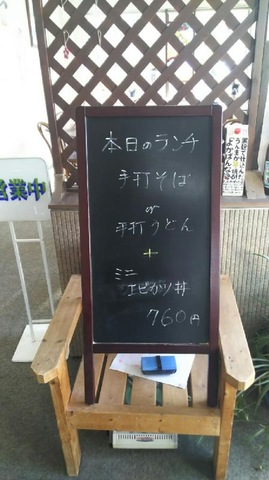 本日のランチ
手打そば
or
手打うどん
+
ミニ
エビカツ丼
760円
営業中